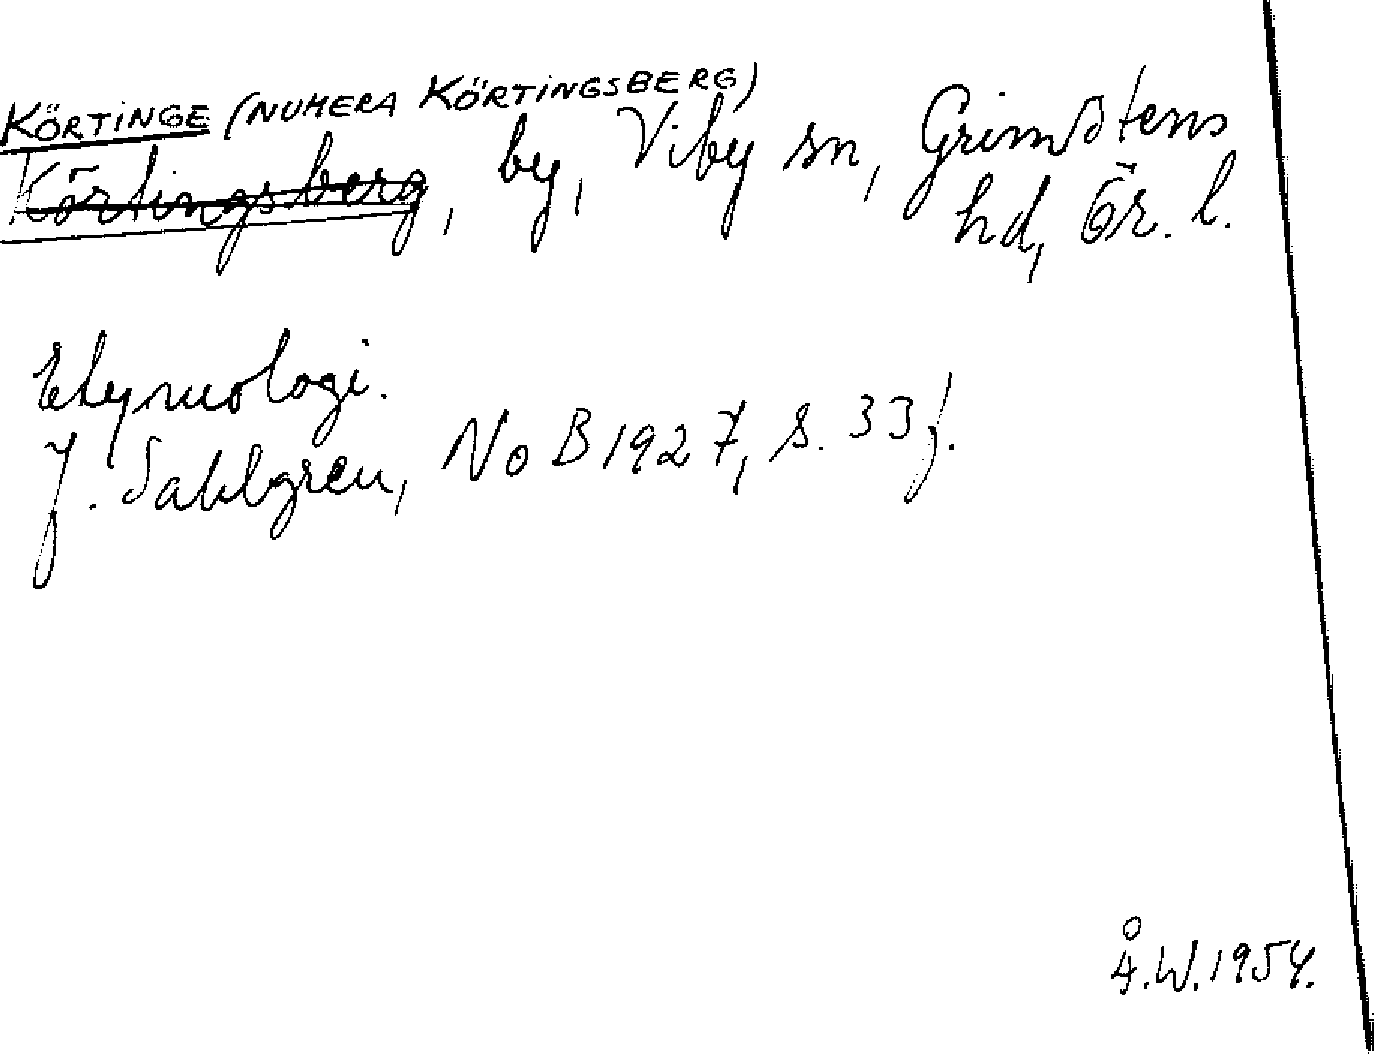 KÖRTINGE (NUMERA KÖRTINGSBERG)
Körtingsberg, by, Viby sn, Grimstens
hd, Ör. l.
Etymologi.
J. Sahlgren, NoB 1927, s. 33 f.
Å.W. 1954.